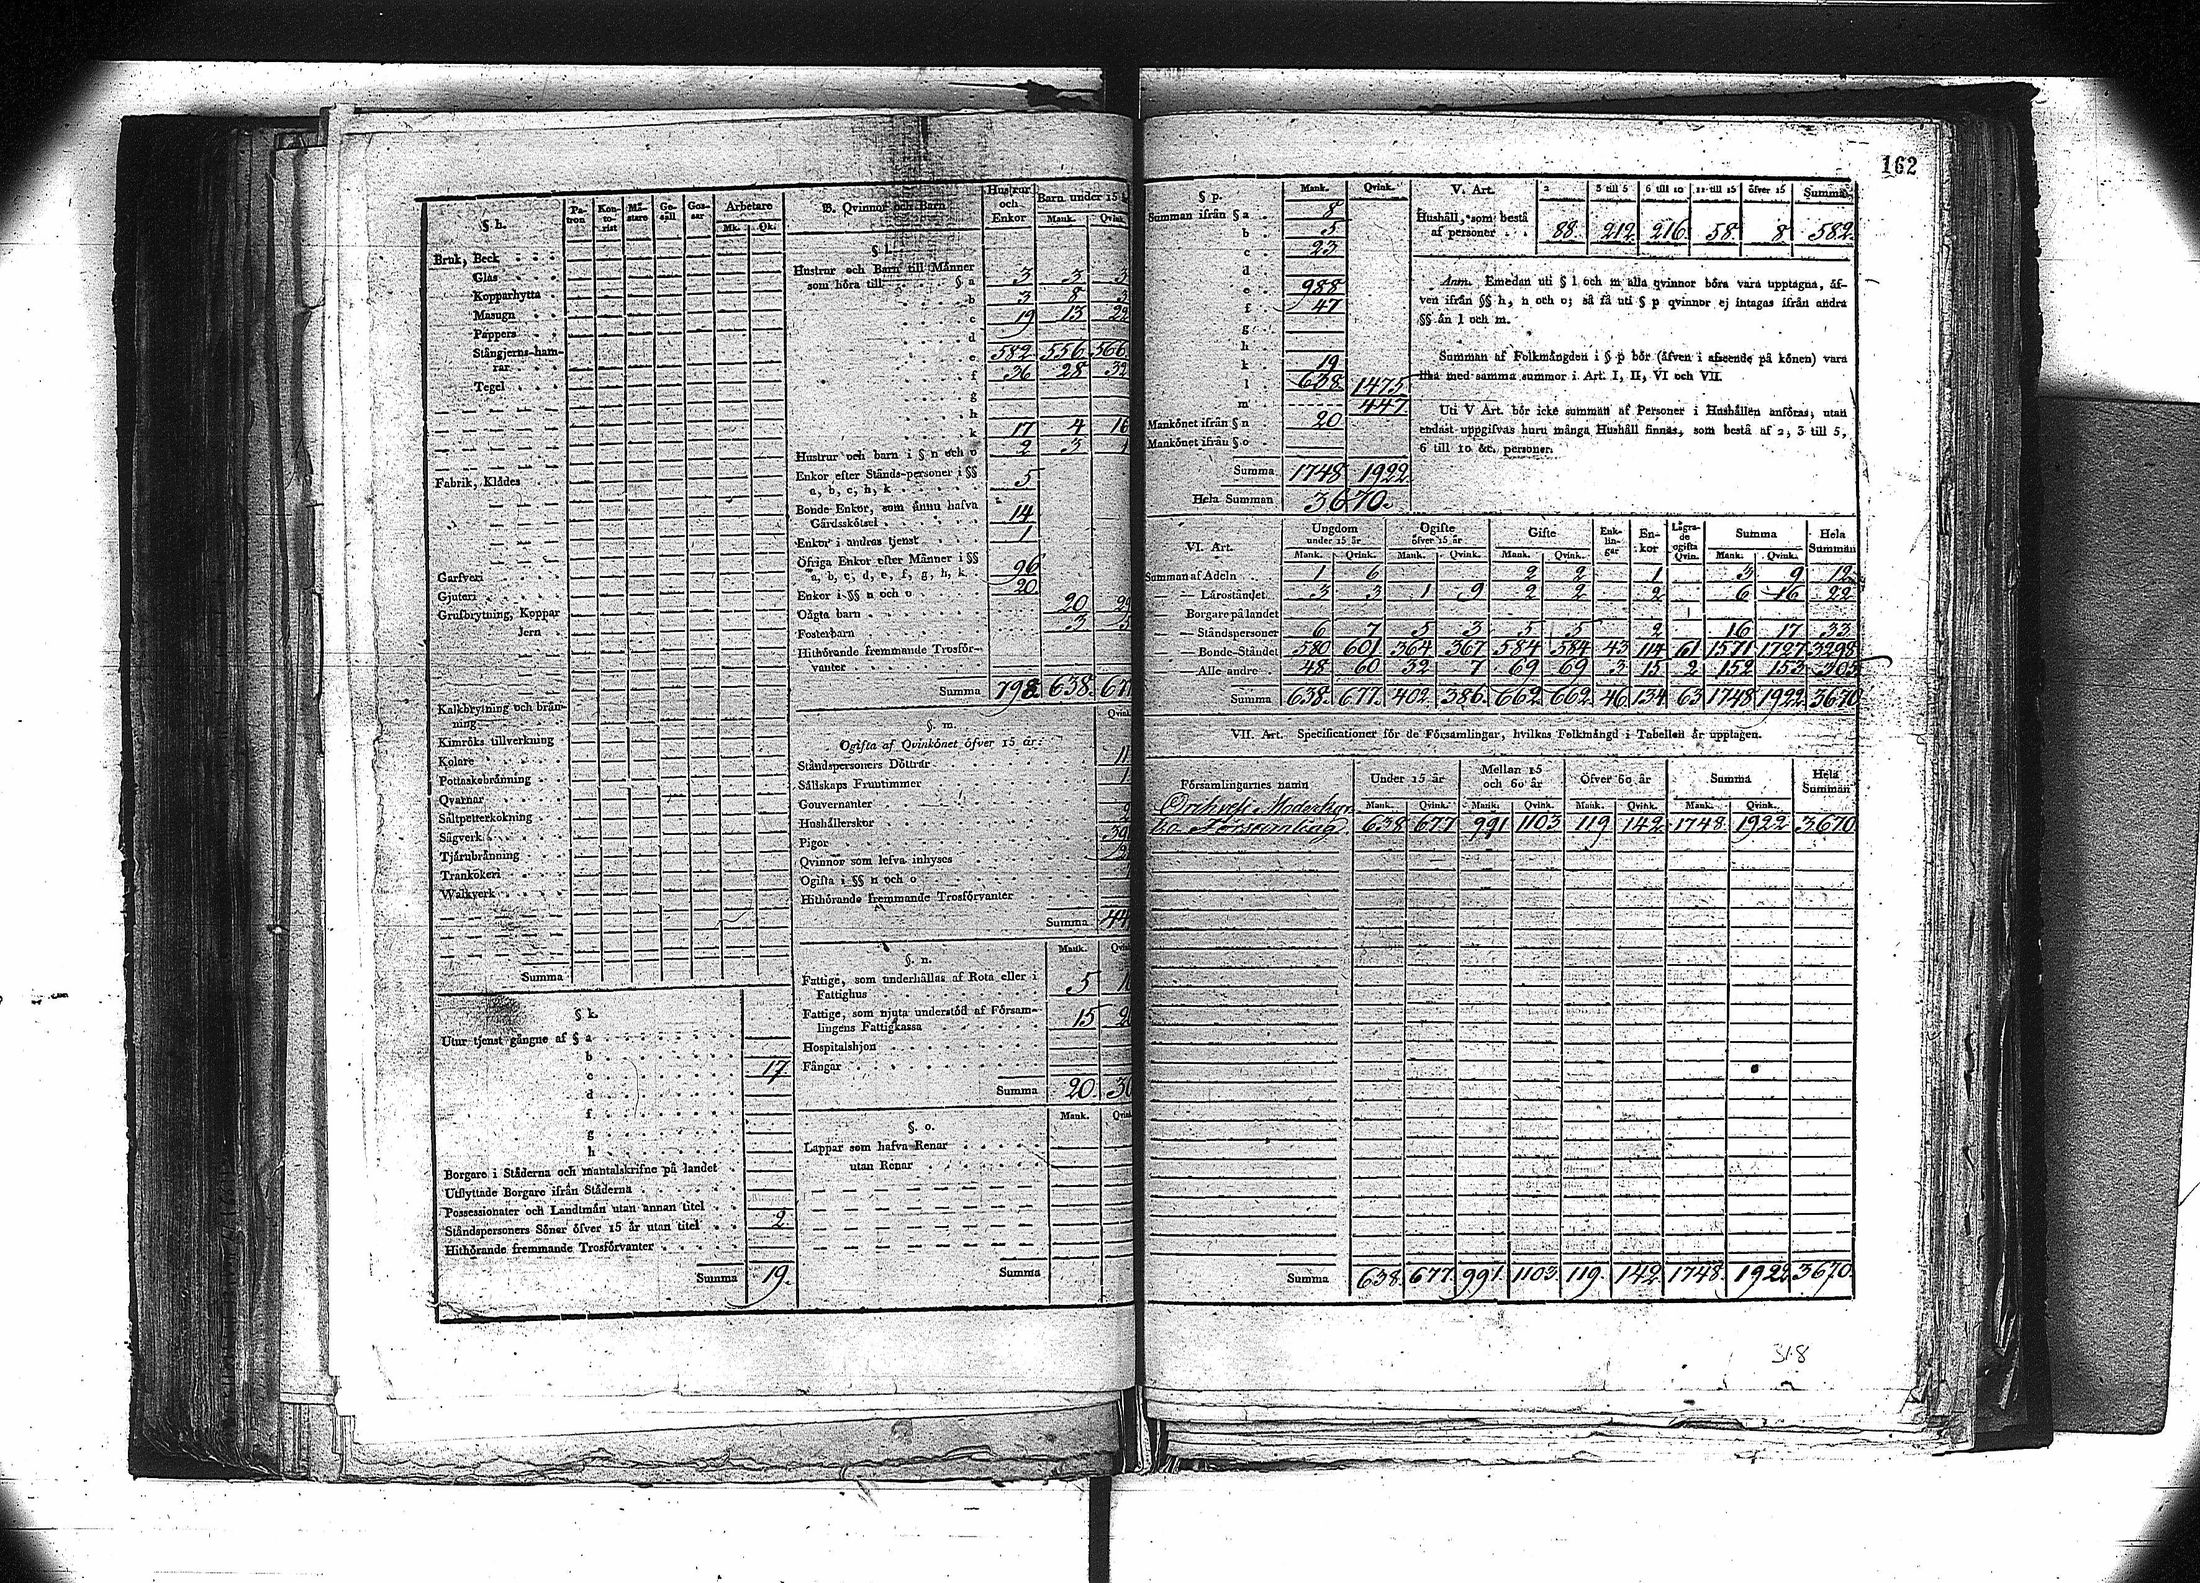 162
§ h.
Patron Kontorist Mästare Gesäll Gossar Arbetare
Mk. Qk.
Bruk, Beck
Glas
Kopparhytta
Masugn
Pappers
Stångjerns-hamrar
Tegel
Fabrik, Klädes
Garfveri
Gjuteri
Grufbrytning, Koppar
Jern
Kalkbrytning och bränning
Kimröks tillverkning
Kolare
Pottaskebränning
Qvarnar
Saltpetterkokning
Sågverk
Tjärubränning
Trankokeri
Walkverk
Summa
§ k.
Utur tjenst gångne af § a
b
c 17.
d
f
g
h
Borgare i Städerna och mantalskrifne på landet
Utflyttade Borgare ifrån Städerna
Possessionater och Landtmän utan annan titel
Ståndspersoners Söner öfver 15 år utan titel 2.
Hithörande fremmande Trosförvanter
Summa 19.
B. Qvinnor och Barn
Hustrur och Enkor Barn under 15
Mank. Qvink.
§ l.
Hustrur och Barn till Männer
som höra till § a 3 3 3
b 3 8 3
c 19 13 22
d
e 582 556 566
f 36 28 32
g
h
k 17 4 16
Hustrur och barn i § n och o 2 3 1
Enkor efter Stånds-personer i §§
a, b, c, h, k 5
Bonde-Enkor, som ännu hafva
Gårdsskötsel 14
Enkor i andras tjenst 1
Öfriga Enkor efter Männer i §§
a, b, c, d, e, f, g, h, k 96
Enkor i §§ n och o 20
Oägta barn 20
Fosterbarn 3 5
Hithörande fremmande Trosförvanter
Summa 798. 638. 677
§. m.
Ogifta af Qvinkönet öfver 15 år:
Ståndspersoners Döttrar
Sällskaps Fruntimmer
Gouvernanter
Hushållerskor
Pigor
Qvinnor som lefva inhyses
Ogifta i §§ n och o
Hithörande fremmande Trosförvanter
Summa
§. n.
Mank.
Fattige, som underhållas af Rota eller i
Fattighus 5
Fattige, som njuta understöd af Församlingens Fattigkassa 15
Hospitalshjon
Fångar
Summa 20.
Mank.
§. o.
Lappar som hafva Renar
utan Renar
Summa
§ p. Mank. Qvink.
Summan ifrån § a 8
b 5
c 23
d
e 988
f 47
g
h
k 19
l 638 1475
m 447
Mankönet ifrån § n 20
Mankönet ifrån § o
Summa 1748 1922
Hela Summan 3670.
V. Art. 2 3 till 5 6 till 10 11 till 15 öfver 15 Summa
Hushåll, som bestå
af personer 88. 212. 216. 58. 8. 582.
Anm. Emedan uti § l och m alla qvinnor böra vara upptagna, äfven ifrån §§ h, n och o; så få uti § p qvinnor ej intagas ifrån andra
§§ än l och m.
Summan af Folkmängden i § p bör (äfven i afseende på könen) vara
lika med samma summor i Art. I, II, VI och VII.
Uti V Art. bör icke summan af Personer i Hushållen anföras, utan
endast uppgifvas huru många Hushåll finnas, som bestå af 2, 3 till 5,
6 till 10 &c. personer.
VI. Art. Ungdom under 15 år Ogifte öfver 15 år Gifte Enklingar Enkor Lägrade ogifta Qvin. Summa Hela Summan
Mank. Qvink. Mank. Qvink. Mank. Qvink. Mank. Qvink.
Summan af Adeln 1 6 2 2 1 3 9 12
— — Läroståndet 3 3 1 9 2 2 2 6 16 22
Borgare på landet
— — Ståndspersoner 6 7 5 3 5 5 2 16 17 33.
— — Bonde-Ståndet 580 601 364 367 584 584 43 114 61 1571 1727 3298
— Alle andre 48 60 32 7 69 69 3 15 2 152 153 305
Summa 638. 677. 402. 386. 662. 662. 46. 134. 63 1748 1922 3670
VII. Art. Specificationer för de Församlingar, hvilkas Folkmängd i Tabellen är upptagen.
Församlingarnes namn Under 15 år Mellan 15 och 60 år Öfver 60 år Summa Hela Summan
Mank. Qvink. Mank. Qvink. Mank. Qvink. Mank. Qvink.
Församling 638 677 991 1103 119 142 1748 1922 3670
Summa 638. 677. 991. 1103. 119. 142 1748. 1922 3670.
318